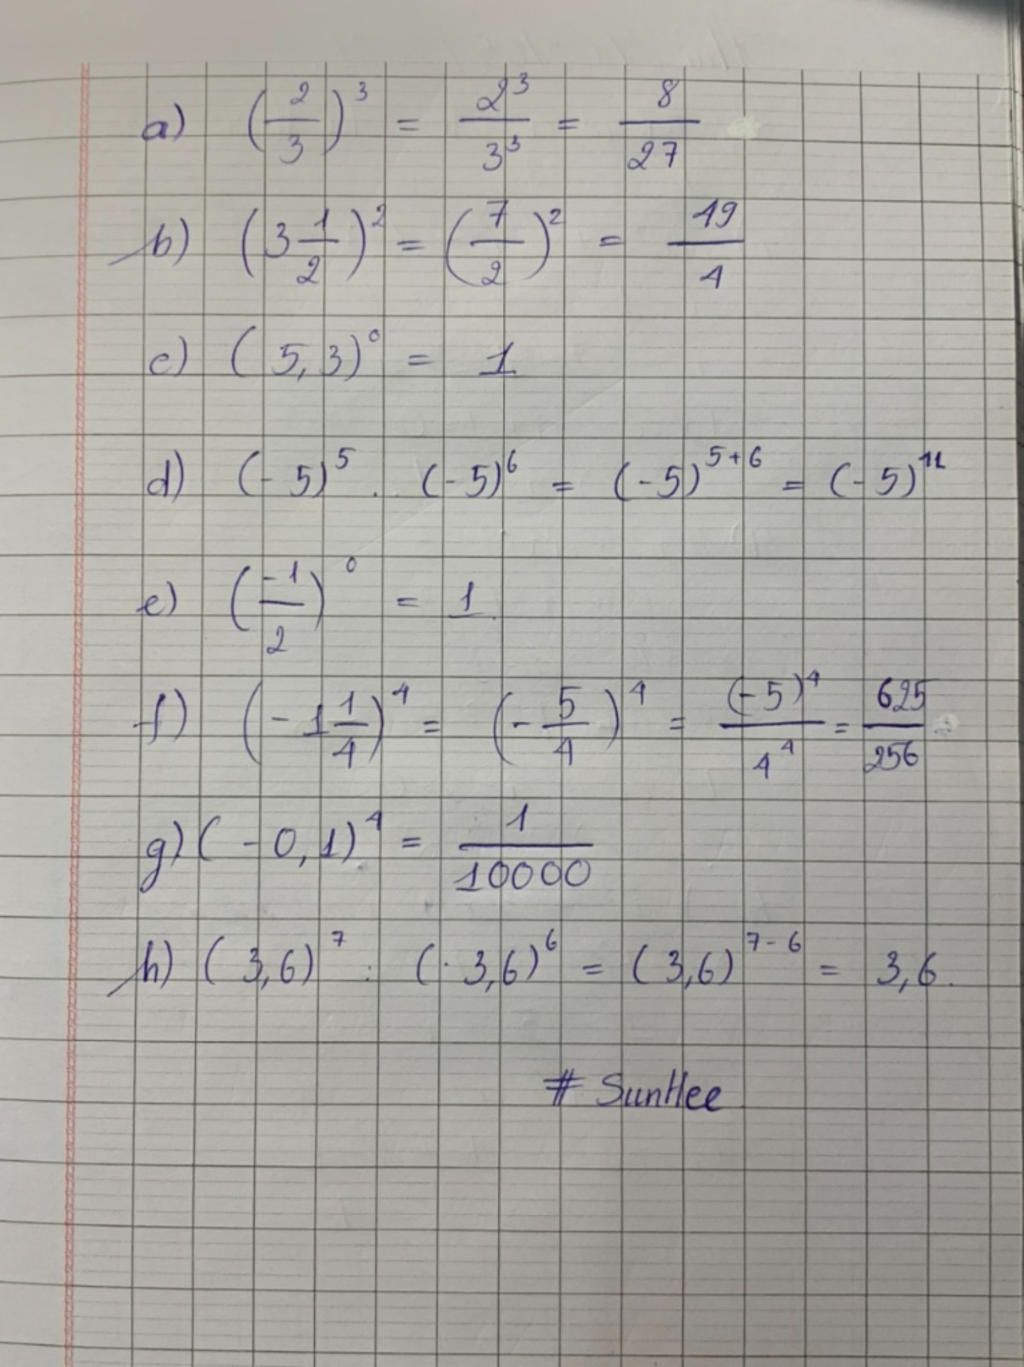 a) (2/3)³ = 2³/3³ = 8/27
b) (3 1/2)² = (7/2)² = 49/4
c) (5,3)⁰ = 1
d) (-5)⁵ . (-5)⁶ = (-5)⁵⁺⁶ = (-5)¹¹
e) (-1/2)⁰ = 1
f) (-1 1/4)⁴ = (-5/4)⁴ = (-5)⁴/4⁴ = 625/256
g) (-0,1)⁴ = 1/10000
h) (3,6)⁷ : (-3,6)⁶ = (3,6)⁷⁻⁶ = 3,6.
# SunHee